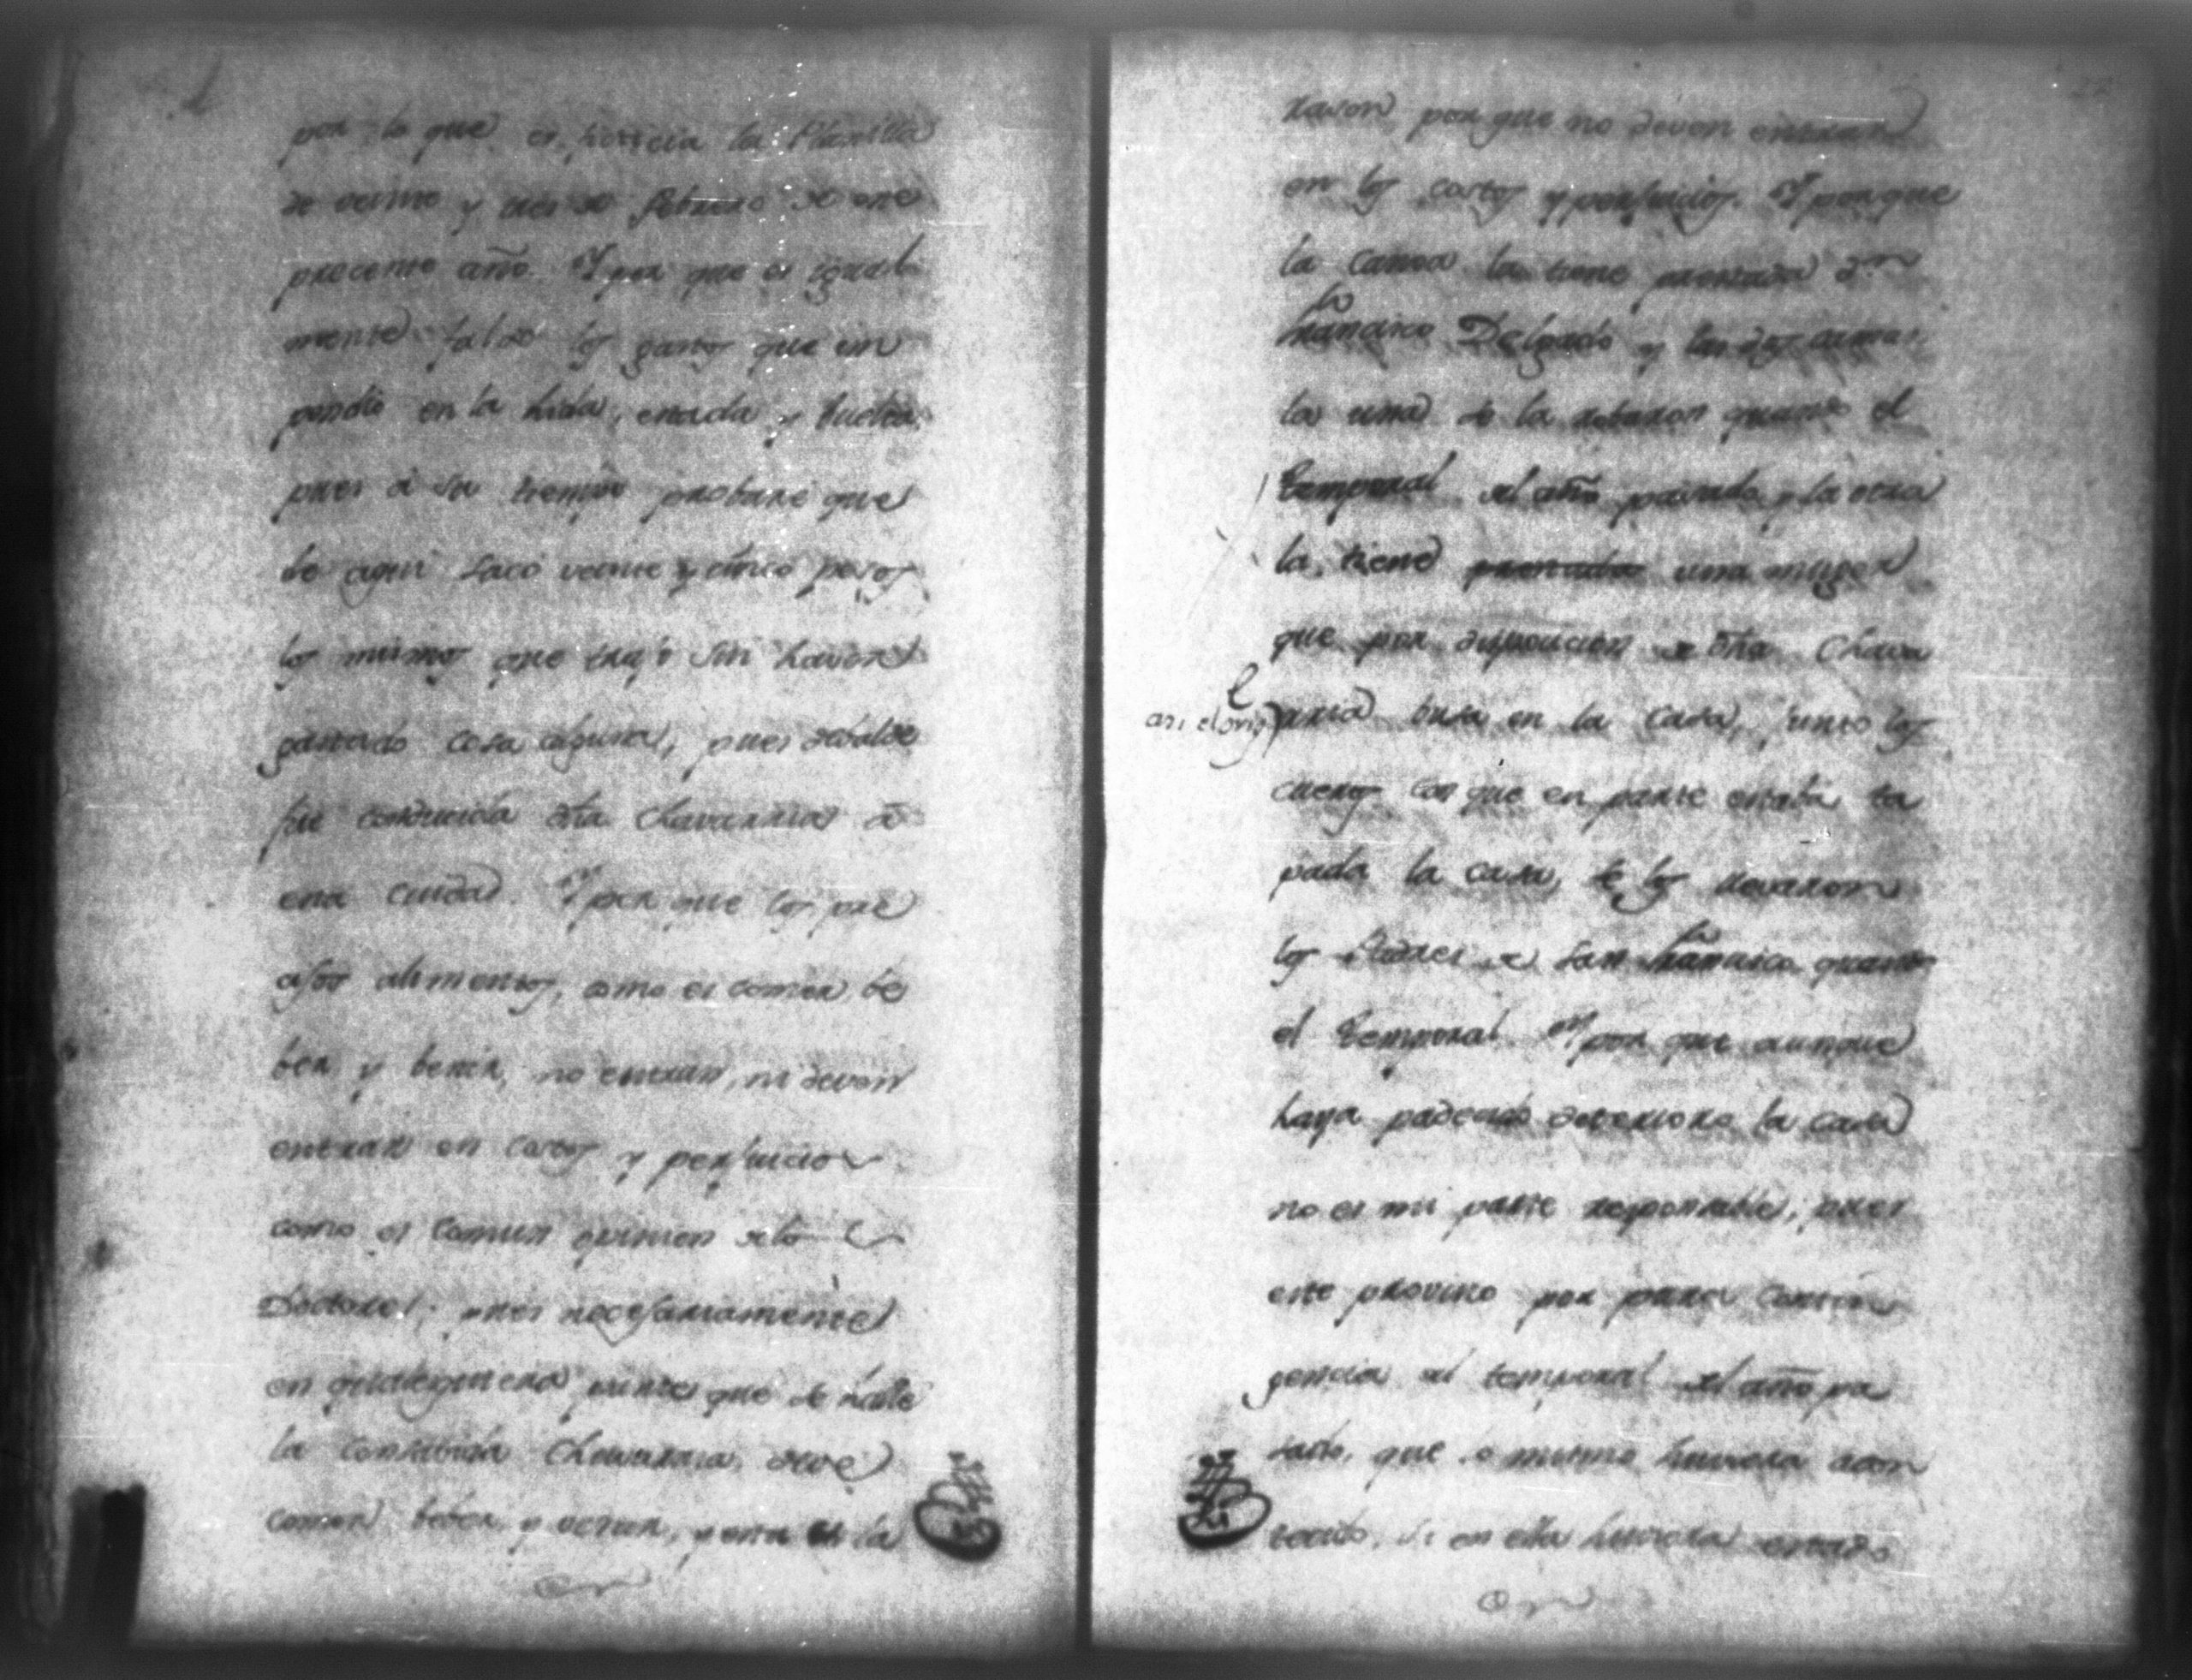 por lo que es justicia la Planilla
de veinte y tres de Febrero de este
precente año. Y por que es igual
mente falso los gastos que im
pendio en la hida, estada y buelta
pues á su tiempo probaré que
de aqui sacó veinte y cinco pesos
los mismos que trajo sin haver
gastado cosa alguna, pues debalde
fue conducida dha. Chavarrias á
esta Ciudad. Y por que los pre
cisos alimentos, como es comer, be
ber y bestir, no entran, ni deven
entrar en costos y perjuicios
como es comun opinion de los
Doctores; pues necesariamente
en qualesquiera parte que se halle
la consabida Chavarria, deve
comer beber y vestir, y esta es la
razon, por que no deven entrar
en los costos y perjuicios. Y porque
la canoa la tiene prestada dn
Francisco Delgado y las dos camas
la una se la robaron quando el
temporal del año pasado, y la otra
la tiene una muger
que por disposicion de dha Chava
rria bive en la casa, junto los
asi el orig.l
cueros con que en parte estaba ta
pada la casa, se los llevaron
los Padres de San Francisco quando
el temporal. Y por que aunque
haya padecido deterioro la casa
no es mi parte responsable; pues
este provino por pura contin
gencia del temporal del año pa
sado, que lo mismo huviera acon
tecido, si en ella huviera estado